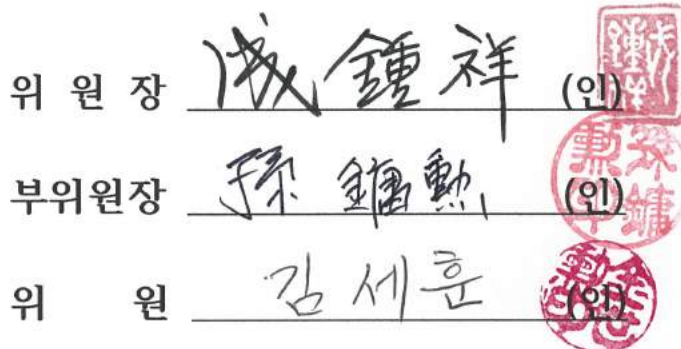 위 원 장 成 鍾 祥 (인)
부위원장 孫 鏞 勳 (인)
위 원 김 세 훈 (인)